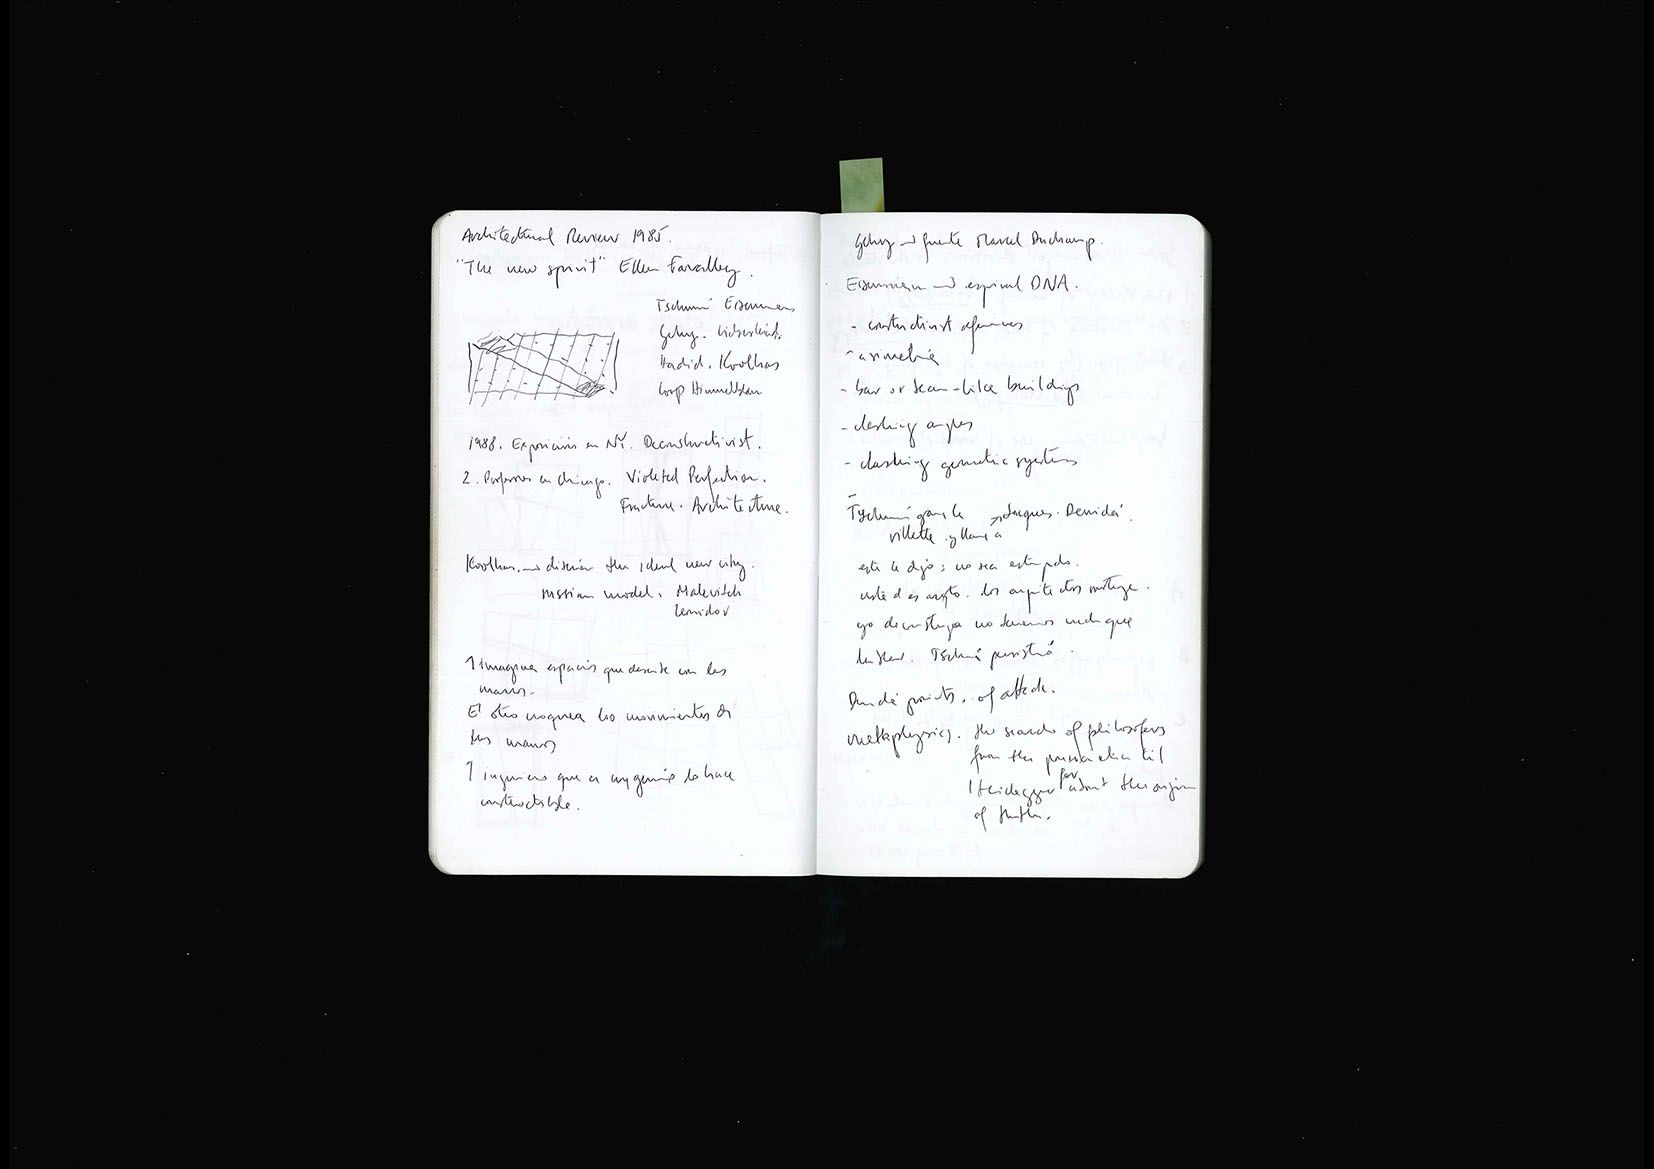 Architectural Review 1985.
"The new spirit" Ellen Faralley.
Tschumi Eisenman
Gehry. Libeskind.
Hadid. Koolhas
Coop Himmelblau
1988. Exposición en NY. Deconstructivist.
2. Profesores en Chicago. Violeted Perfection.
Fracture. Architecture.
Koolhas the ideal new city.
russian model. Malevitch
Leonidov
1 imagina espacios que con las
manos.
El otro los movimientos de
las manos
1 ingeniero que lo hace
constructible.
Gehry → fuente Marcel Duchamp.
Eisenman → espiral DNA.
- constructivist
- asimetría
- bar or beam-like buildings
- clashing angles
- clashing geometric systems
Tschumi gana la → Jacques. Derridá.
villette y llama a
este le dijo: no sea estúpido.
usted es arqto. los arquitectos
yo no tenemos nada que
Tschumi persistió.
points. of attack.
metaphysics. the search of philosofers
from the til
Heidegger for about the origin
of truth.